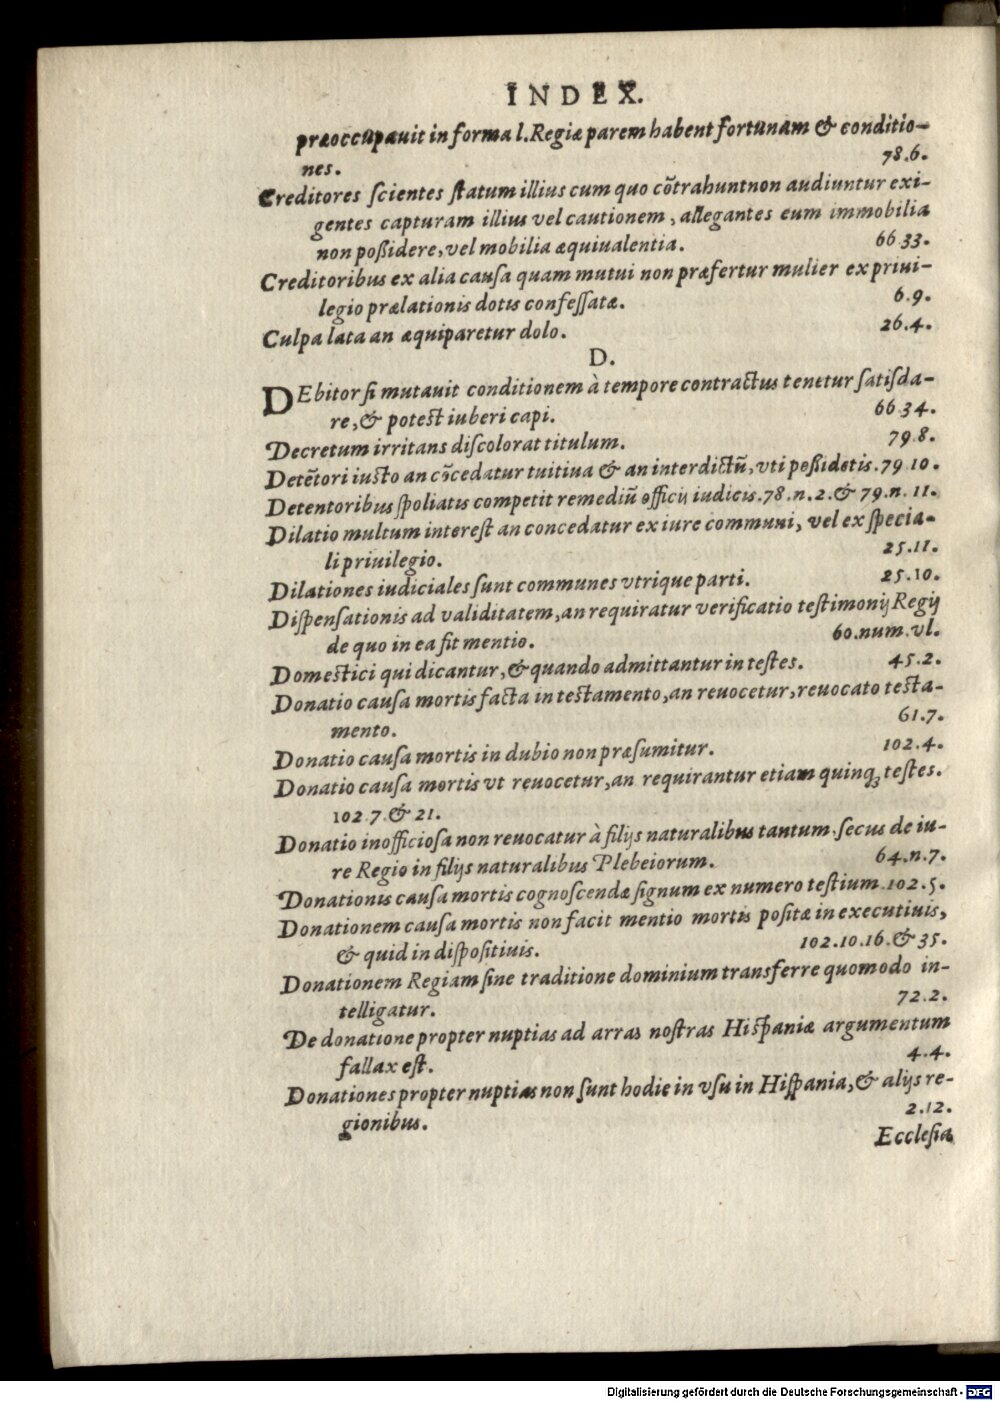 INDEX.
præoccupauit in forma l. Regiæ parem habent fortunam & conditio-
nes. 78.6.
Creditores ſcientes ſtatum illius cum quo cõtrahunt non audiuntur exi-
gentes capturam illius vel cautionem, allegantes eum immobilia
non poßidere, vel mobilia æquiualentia. 66.33.
Creditoribus ex alia cauſa quam mutui non præfertur mulier ex priui-
legio prælationis dotis confeſſatæ. 6.9.
Culpa lata an æquiparetur dolo. 26.4.
D.
DEbitor ſi mutauit conditionem à tempore contractus tenetur ſatiſda-
re, & potest iuberi capi. 66.34.
Decretum irritans diſcolorat titulum. 79.8.
Detẽtori iusto an cõcedatur tuitiua & an interdictũ, vti poßidetis. 79.10.
Detentoribus ſpoliatis competit remediũ officij iudicis. 78.n.2. & 79.n.11.
Dilatio multum intereſt an concedatur ex iure communi, vel ex ſpecia-
li priuilegio. 25.11.
Dilationes iudiciales ſunt communes vtrique parti. 25.10.
Diſpenſationis ad validitatem, an requiratur verificatio teſtimonij Regij
de quo in ea fit mentio. 60.num.vl.
Domestici qui dicantur, & quando admittantur in teſtes. 45.2.
Donatio cauſa mortis facta in testamento, an reuocetur, reuocato testa-
mento. 61.7.
Donatio cauſa mortis in dubio non præſumitur. 102.4.
Donatio cauſa mortis vt reuocetur, an requirantur etiam quinq; teſtes.
102.7. & 21.
Donatio inofficioſa non reuocatur à filijs naturalibus tantum. ſecus de iu-
re Regio in filijs naturalibus Plebeiorum. 64.n.7.
Donationis cauſa mortis cognoſcendæ ſignum ex numero teſtium. 102.5.
Donationem cauſa mortis non facit mentio mortis poſitæ in executiuis,
& quid in diſpoſitiuis. 102.10.16. & 35.
Donationem Regiam ſine traditione dominium transferre quomodo in-
telligatur. 72.2.
De donatione propter nuptias ad arras noſtras Hiſpaniæ argumentum
fallax eſt. 4.4.
Donationes propter nuptias non ſunt hodie in vſu in Hiſpania, & alijs re-
gionibus. 2.12.
Eccleſia
Digitalisierung gefördert durch die Deutsche Forschungsgemeinschaft - DFG